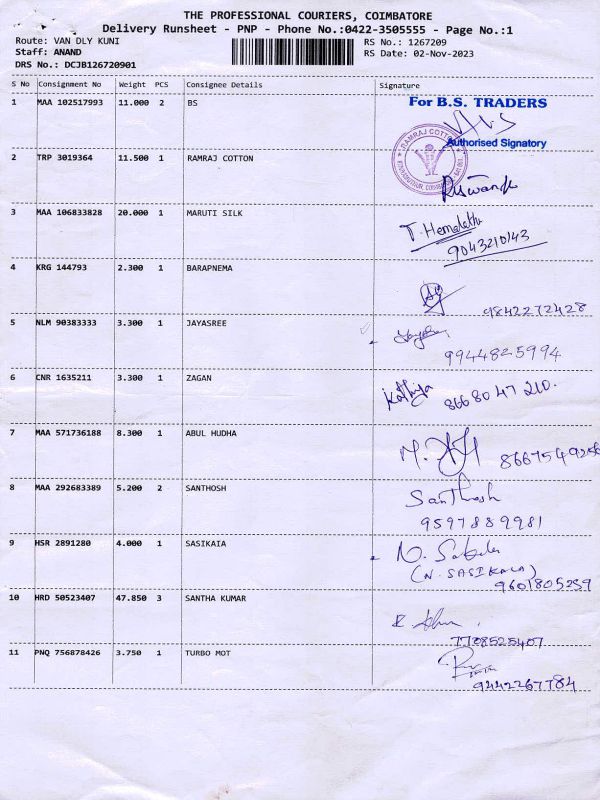 THE PROFESSIONAL COURIERS, COIMBATORE
Delivery Runsheet - PNP - Phone No.:0422-3505555 - Page No.:1
Route: VAN DLY KUNI RS No.: 1267209
Staff: ANAND RS Date: 02-Nov-2023
DRS No.: DCJB126720901
S No Consignment No Weight PCS Consignee Details Signature
1 MAA 102517993 11.000 2 BS For B.S. TRADERS
Authorised Signatory
2 TRP 3019364 11.500 1 RAMRAJ COTTON
RAMRAJ COTTON
3 MAA 106833828 20.000 1 MARUTI SILK
9043210143
4 KRG 144793 2.300 1 BARAPNEMA
9842272428
5 NLM 90383333 3.300 1 JAYASREE
9944825994
6 CNR 1635211 3.300 1 ZAGAN
8668047210.
7 MAA 571736188 8.300 1 ABUL HUDHA
8667549256
8 MAA 292683389 5.200 2 SANTHOSH Santhosh
9597889981
9 HSR 2891280 4.000 1 SASIKAIA
(N. SASIKALA)
9601805239
10 HRD 50523407 47.850 3 SANTHA KUMAR
7708525407
11 PNQ 756878426 3.750 1 TURBO MOT
9442267784